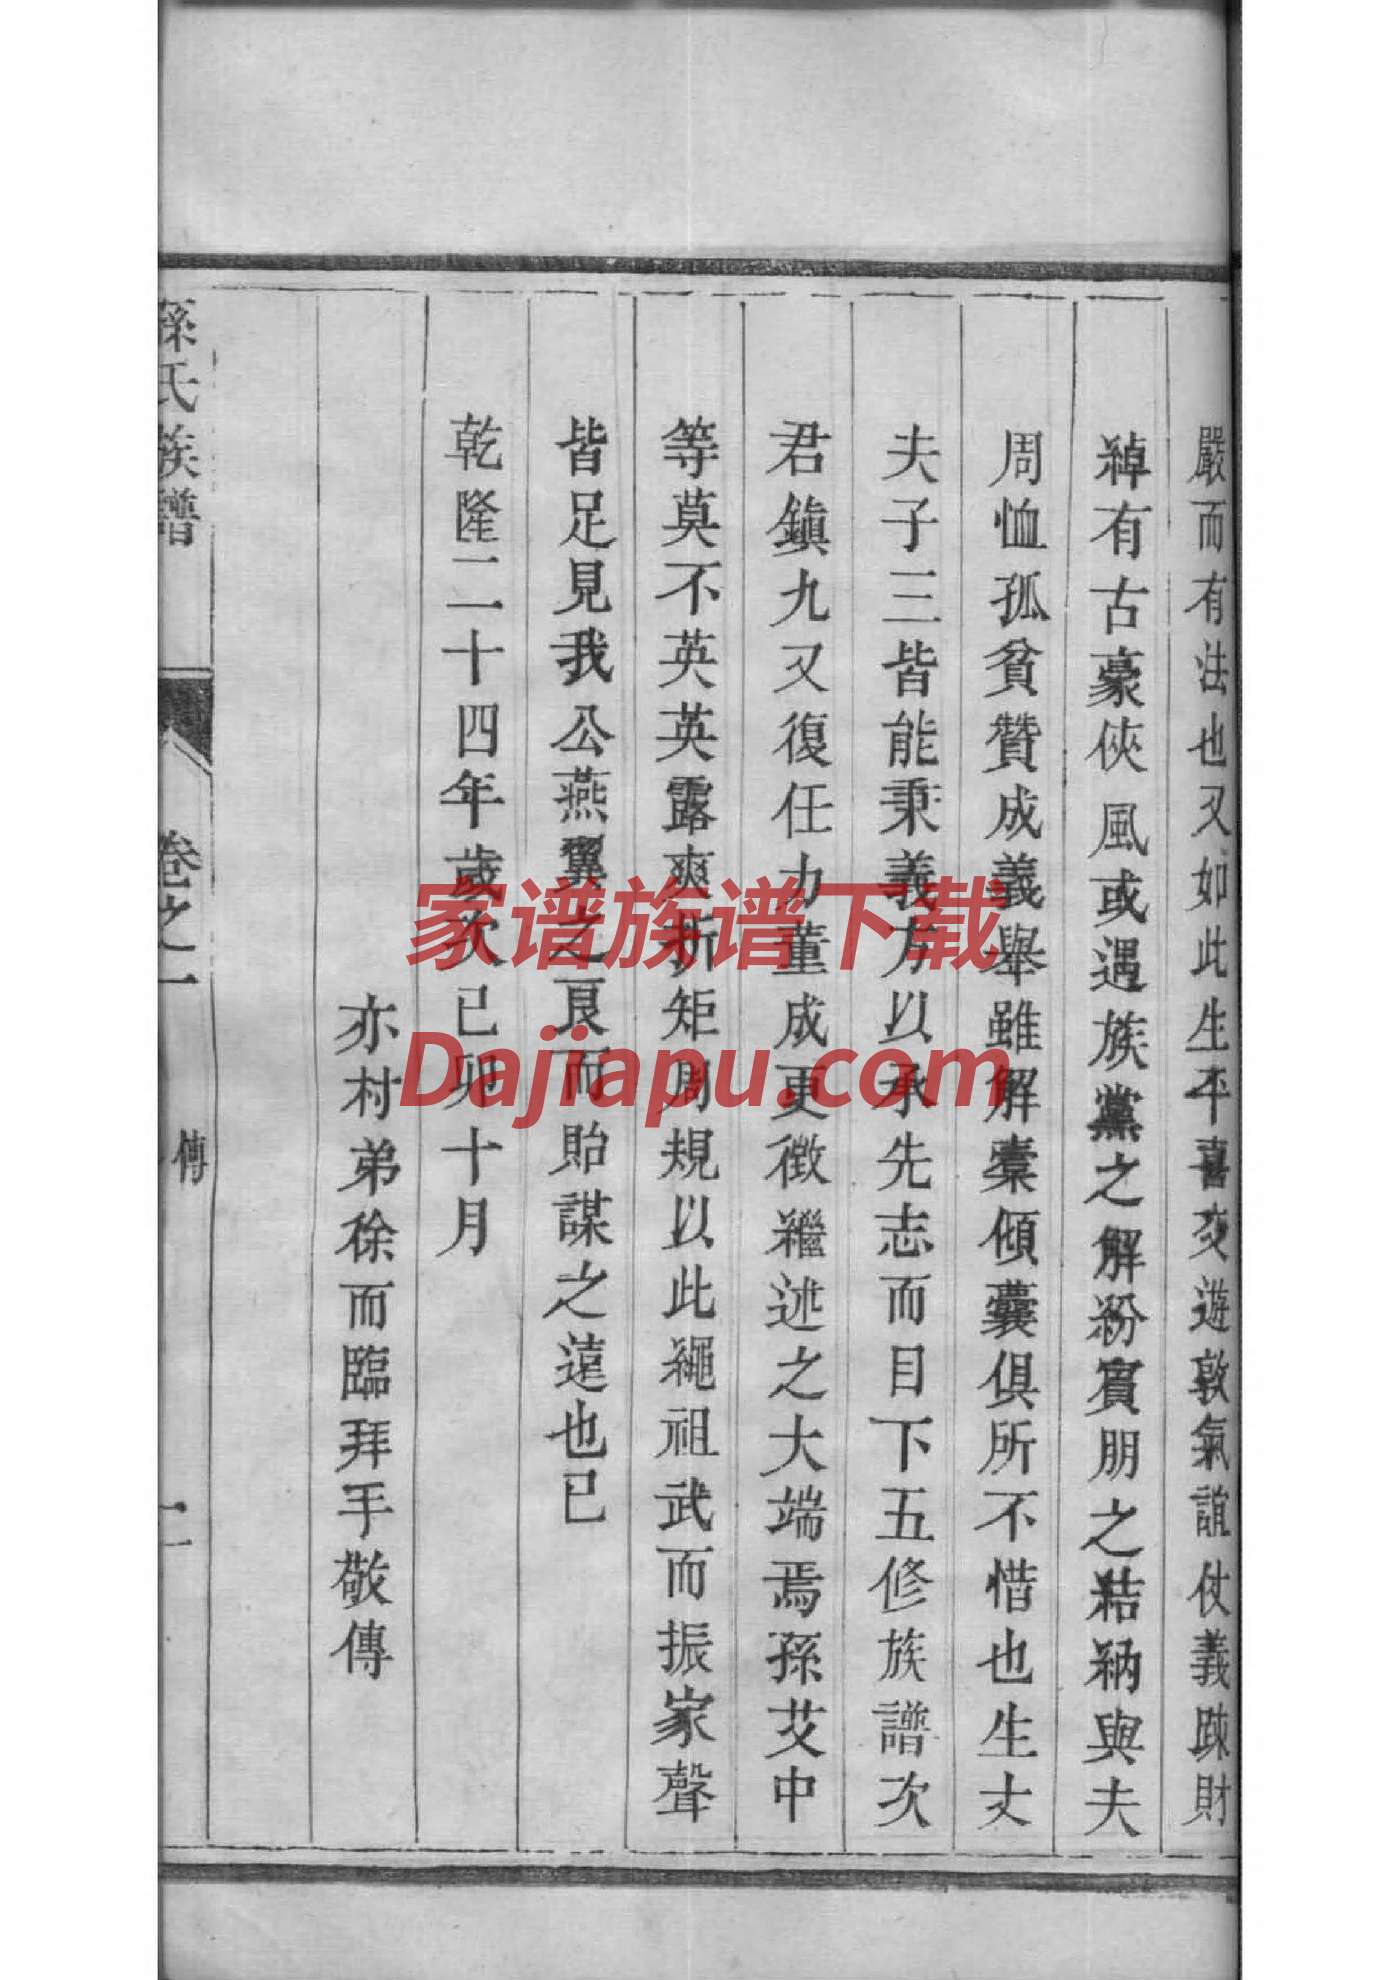 嚴而有法也又如此生平喜交遊敦氣誼仗義踈財
綽有古豪俠風或遇族黨之解紛賓朋之結納與夫
周恤孤貧贊成義舉雖解橐傾囊俱所不惜也生丈
夫子三皆能秉義方以承先志而目下五修族譜次
君鎮九又復任力董成更徵繼述之大端焉孫艾中
等莫不英英露爽折矩周規以此繩祖武而振家聲
皆足見我公燕翼之良而貽謀之遠也已
乾隆二十四年歲次己卯十月
亦村弟徐而臨拜手敬傳
孫氏族譜
卷之一
傳
二
家谱族谱下载
Dajiapu.com